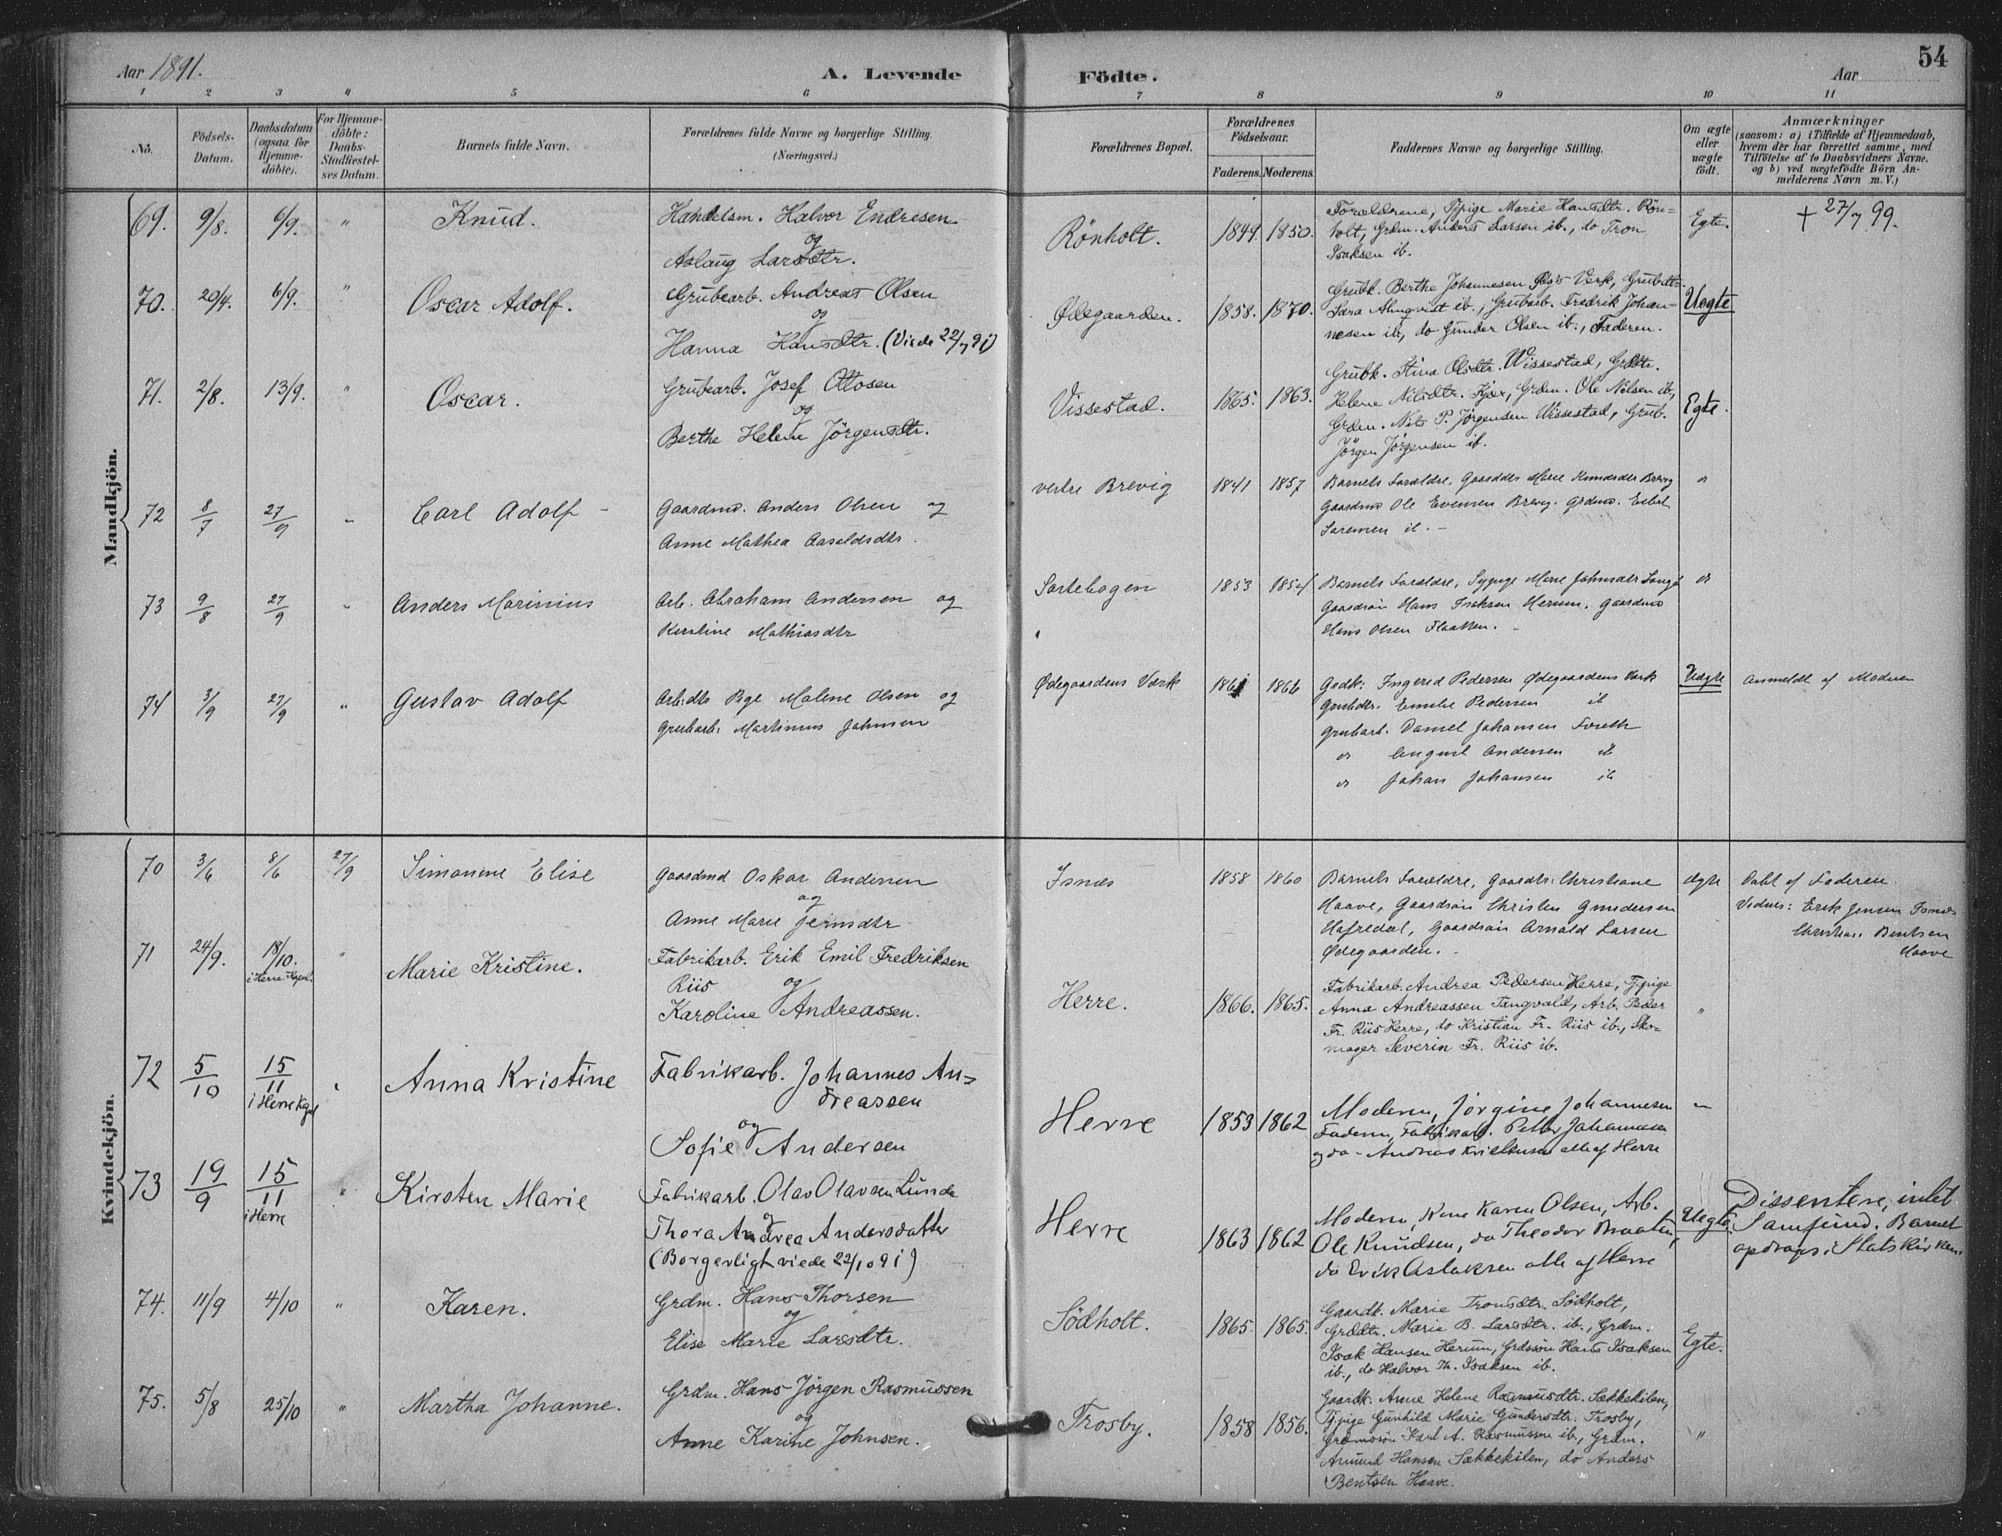 Aar 1891.
A. Levende Födte.
Aar
54
1 2 3 4 5 6 7 8 9 10 11
No.
Födsels-Datum.
Daabsdatum (ogsaa for Hjemme-döbte).
For Hjemme-döbte: Daabs-Stadfæstel-ses Datum.
Barnets fulde Navn.
Forældrenes fulde Navne og borgerlige Stilling. (Næringsvei.)
Forældrenes Bopæl.
Forældrenes Födselsaar.
Faderens. Moderens.
Faddernes Navne og borgerlige Stilling.
Om ægte eller uægte født.
Anmærkninger
(saasom: a) i Tilfælde af Hjemmedaab,
hvem der har forrettet samme, med
Tilföielse af to Daabsvidners Navne.
og b) ved uægtefödte Börn An-
melderens Navn m. V.)
Mandkjön.
69. 9/8. 6/9. " Knud.
Handelsm. Halvor Endresen
og
Aslaug Larsdtr.
Rönholt. 1849. 1850.
Forældrene, Tjpige Marie Hansdtr. Rön-
holt, Grdm. Anders Larsen ib., do Tron
Isaksen ib.
Egte. + 27/7 99.
70. 20/4. 6/9. " Oscar Adolf.
Grubearb. Andreas Olsen
og
Hanna Hansdtr. (Viede 22/7 91)
Ødegaarden. 1858. 1870.
Grubk. Berthe Johannesen Ødgs Verk, Grubdtr.
Sara Almqvist ib., Grubarb. Fredrik Johan-
nesen ib, do Gunder Olsen ib., Faderen.
Uegte
71. 2/8. 13/9. " Oscar.
Grubearb. Josef Ottosen
og
Berthe Helene Jörgensdtr.
Vissestad. 1865. 1863.
Grubk. Stina Olsdtr. Wissestad, Grdtr.
Helene Nilsdtr. Kjær, Grdm. Ole Nilsen ib,
Grdm. Nils P. Jørgensen Wissestad, Grub.
Jörgen Jörgensen ib.
Egte.
72 8/7 27/9 " Carl Adolf
Gaardmd. Anders Olsen og
Anne Mathea Aasoldsdtr.
vestre Brevig 1841 1857
Barnets Forældre, Gaarddtr Marie Brevig
Gaardmd Ole Evensen Brevig, Grdmd.
Sorensen ib.
do
73 9/8 27/9 " Anders Marinius
Arb. Abraham Andersen og
Kerstine Mathiasdtr
Sortebogen 1853 1854
Barnets Forældre, Sypige Marie Johnsdtr
Gaardsön Hans Isaksen Herum, Gaardmd
Hans Olsen Flaatten.
do
74 3/9 27/9 " Gustav Adolf
Arb:dtr Pge Malene Olsen og
Grubarb: Martinius Johnsen
Ødegaardens Værk 1861 1866
Gadk: Ingered Pedersen Ødegaardens Værk
Grubdtr. Emilie Pedersen ib
Grubarb. Daniel Johansen Foseth
do August Andersen ib
do Johan Johansen ib
Uægte anmeldt af Moderen
Kvindekjön.
70 3/6 8/6 27/9 Simonine Elise
Gaardmd Oskar Andersen
og
Anne Marie Jensdtr
Isnæs 1858 1860
Barnets Forældre, Gaardtr: Christiane
Haave, Gaardsön Christen Gundersen
Hafredal, Gaardsön Arnold Larsen
Ødegaarden.
ægte
Døbt af Faderen.
Vidner: Erik Jensen Isnæs
Christian Bentsen
Haave
71 24/9. 18/10. i Herre Kapel. " Marie Kristine.
Fabrikarb. Erik Emil Fredriksen
Riis og
Karoline Andreassen.
Herre. 1866. 1865.
Fabrikarb. Andrea Pedersen Herre, Tjpige
Anna Andreassen Tangvald, Arb. Peder
Fr. Riis Herre, do Kristian Fr. Riis ib., Sko-
mager Severin Fr. Riis ib.
"
72 5/10 15/11 i Herre Kpel " Anna Kristine
Fabrikarb. Johannes An-
dreassen
og
Sofie Andersen
Herre 1853 1862
Moderen, Jørgine Johannesen
Faderen, Fabrikarb. Petter Johannesen
og do - Andreas Kristensen alle af Herre
"
73 19/9 15/11 i Herre " Kirsten Marie
Fabrikarb. Olav Olavsen Lunde
og
Thora Andrea Andersdatter
(Borgerligt viede 22/10 91)
Herre 1863 1862
Moderen, Kone Karen Olsen, Arb.
Ole Knudsen, do Theodor Braaten,
do Erik Aslaksen alle af Herre
Uegte.
Dissentere, intet
Samfund. Barnet
opdrages i Statskirken
74. 11/9 4/10 " Karen.
Grdm. Hans Thorsen
og
Elise Marie Larsdtr.
Södholt. 1865. 1865.
Gaardk. Marie Tronsdtr. Södholt,
Grdtr. Marie B. Larsdtr. ib., Grdm.
Isak Hansen Herum, Grdssön Hans Isaksen
ib., do Halvor Th. Isaksen ib.
Egte.
75. 5/8 25/10 " Martha Johanne.
Grdm. Hans Jörgen Rasmussen
og
Anne Karine Johnsen.
Trosby. 1858 1856.
Gaardk. Anne Helene Rasmusdtr. Sækkekilen,
Tjpige Gunhild Marie Gundersdtr. Trosby,
Grdmssön Karl A. Rasmussen ib., Grdm.
Amund Hansen Sækkekilen, do Anders
Bentsen Haave.
"